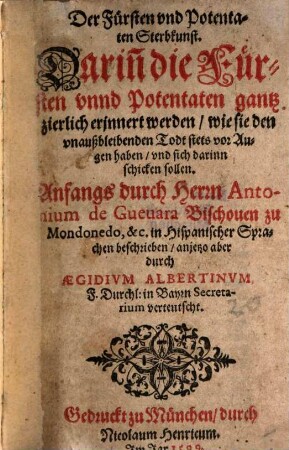 Der Fürsten vnd Potenta-
ten Sterbkunst.
Dariñ die Für-
sten vnnd Potentaten gantz
zierlich erjnnert werden / wie sie den
vnaußbleibenden Todt stets vor Au-
gen haben / vnd sich darinn
schicken sollen.
Anfangs durch Herrn Anto-
nium de Gueuara Bischouen zu
Mondonedo, &c. in Hispanischer Spra-
chen beschrieben / anjetzo aber
durch
ÆGIDIVM ALBERTINVM
F. Durchl: in Bayrn Secreta-
rium verteutscht.
Gedruckt zu München / durch
Nicolaum Henricum.
Im Jar